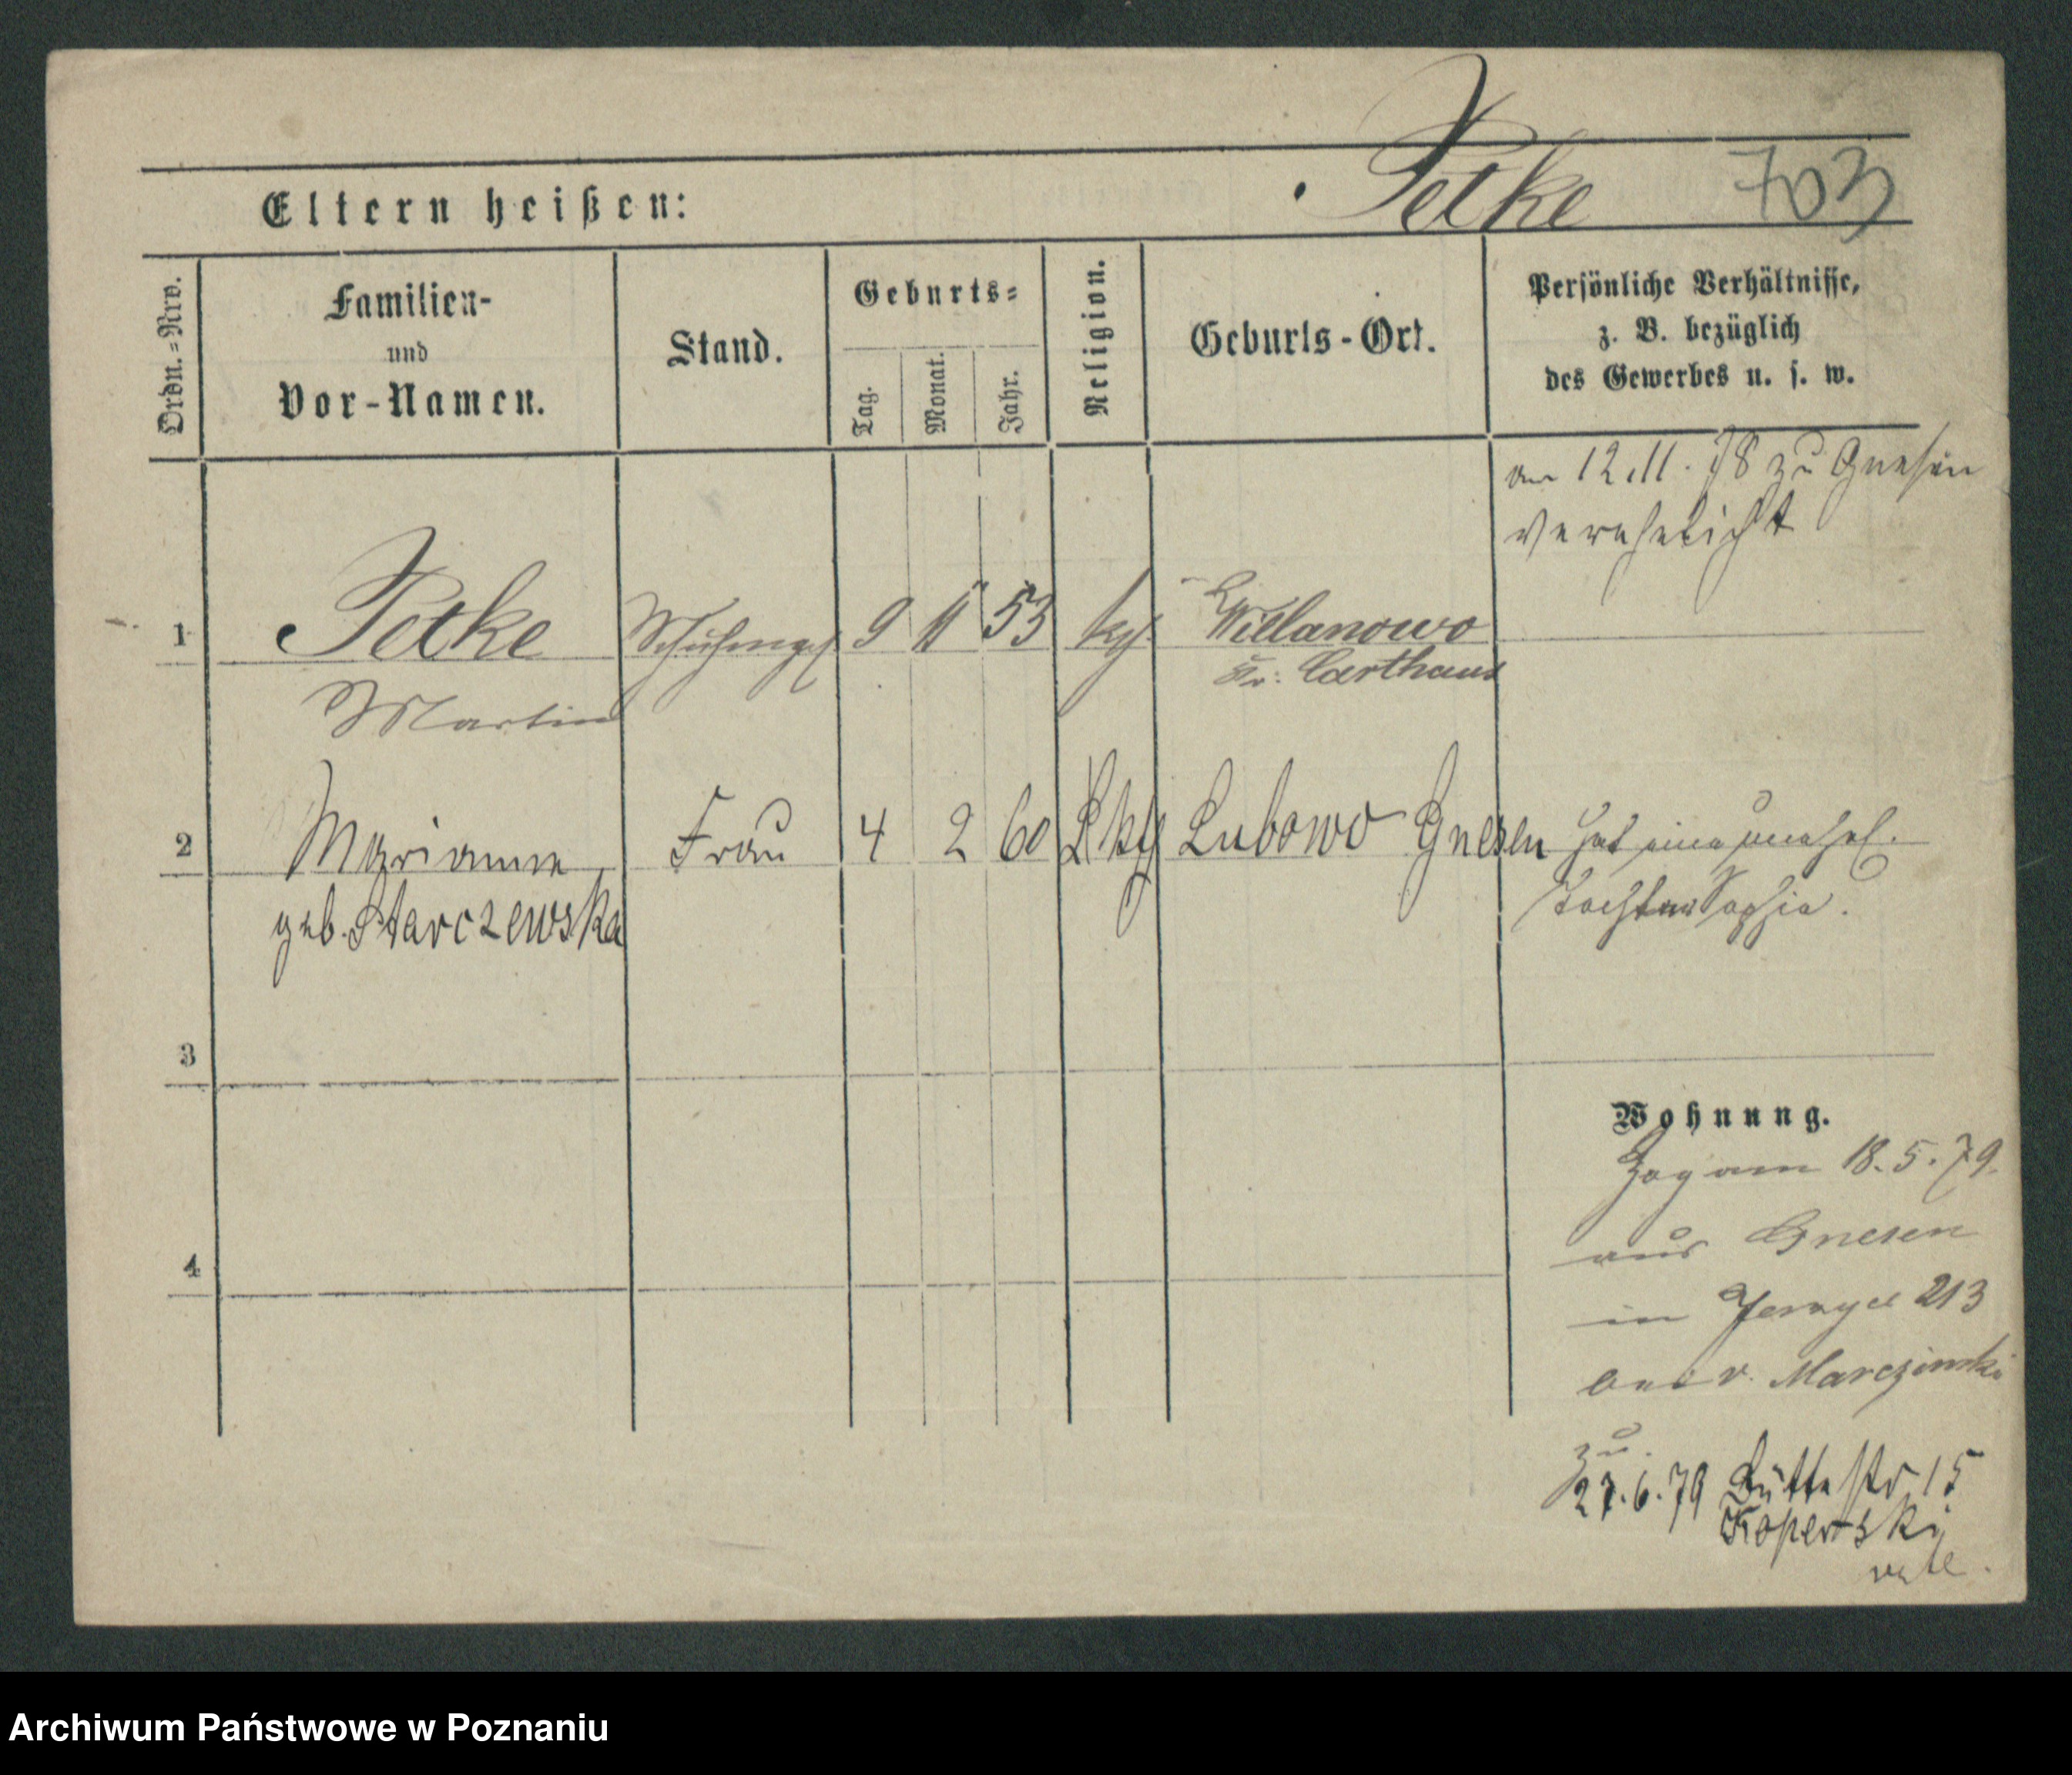 Eltern heißen: Petke 703
Ordn.=Nro.
Familien-
und
Vor-Namen.
Stand.
Geburts=
Tag.
Monat.
Jahr.
Religion.
Geburts-Ort.
Persönliche Verhältnisse,
z. B. bezüglich
des Gewerbes u. s. w.
am 12.11.78 zu Gnesen
verehelicht
1 Petke Schuhmges. 9 11 53 kath. Willanowo
Kr. Carthaus
Martin
2 Marianna Frau 4 2 60 kath Lubowo Gnesen hat eine unehel.
geb. Starczewska Tochter Sophia.
3
Wohnung.
Zog am 18.5.79.
aus Gnesen
4
in Jersyce 213
bei v. Marczinski
zu
27.6.79 Büttelstr 15
Koperski